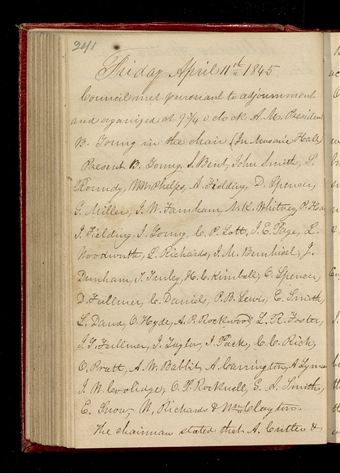 241
Friday April 11th 1845
Council met pursuant to adjournment
and organized at 9¾ o clock A.M. President
B. Young in the chair (In Masonic Hall)
Present B. Young, S. Bent, John Smith, S.
Roundy, W.W. Phelps, A. Fielding, D. Spencer,
G. Miller, J. W. Farnham, N.K. Whitney, P. Haws
J. Fielding, J. Young, C. P. Lott, J. E. Page, L.
Woodworth, L. Richards, J. M. Bernhisel, J.
Dunham, T. Turley, H. C. Kimball, O. Spencer,
D. Fullmer, C. Daniels, P. B. Lewis, E. Smith,
L. Dana, O. Hyde, A. P. Rockwood, L. R. Foster,
J. S. Fullmer, J. Taylor, J. Pack, C. C. Rich,
O. Pratt, A. W. Babbitt, A. Carrington, A Lyman
J. W. Coolidge, O. P. Rockwell, G. A. Smith,
E. Snow, W. Richards & Wm Clayton.
The chairman stated that A. Cutler &